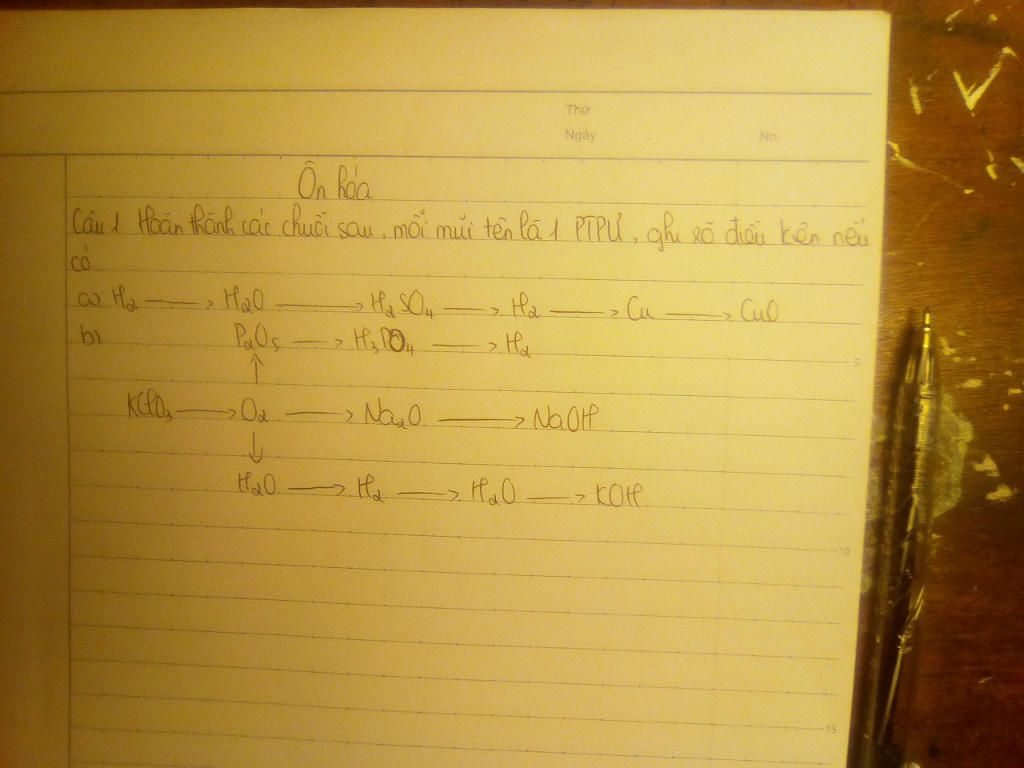 Thứ
Ngày No.
Ôn hóa
Câu 1 Hoàn thành các chuỗi sau, mỗi mũi tên là 1 PTPƯ, ghi rõ điều kện nếu
có
a) H₂ → H₂O → H₂SO₄ → H₂ → Cu → CuO
b) P₂O₅ → H₃PO₄ → H₂
5
↑
KClO₃ → O₂ → Na₂O → NaOH
↓
H₂O → H₂ → H₂O → KOH
10
15